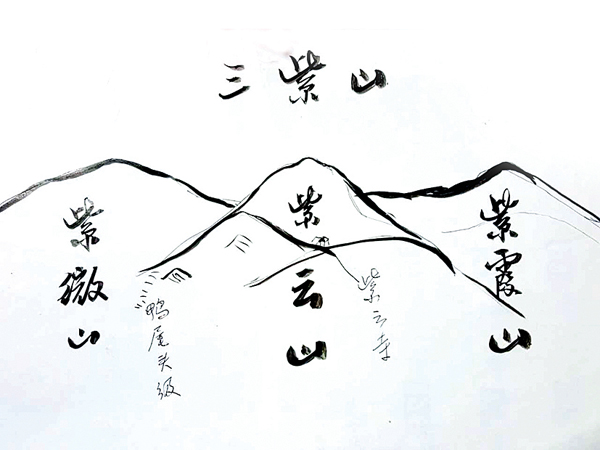 三紫山
紫微山
鸭尾头级
紫云山
紫云寺
紫霞山